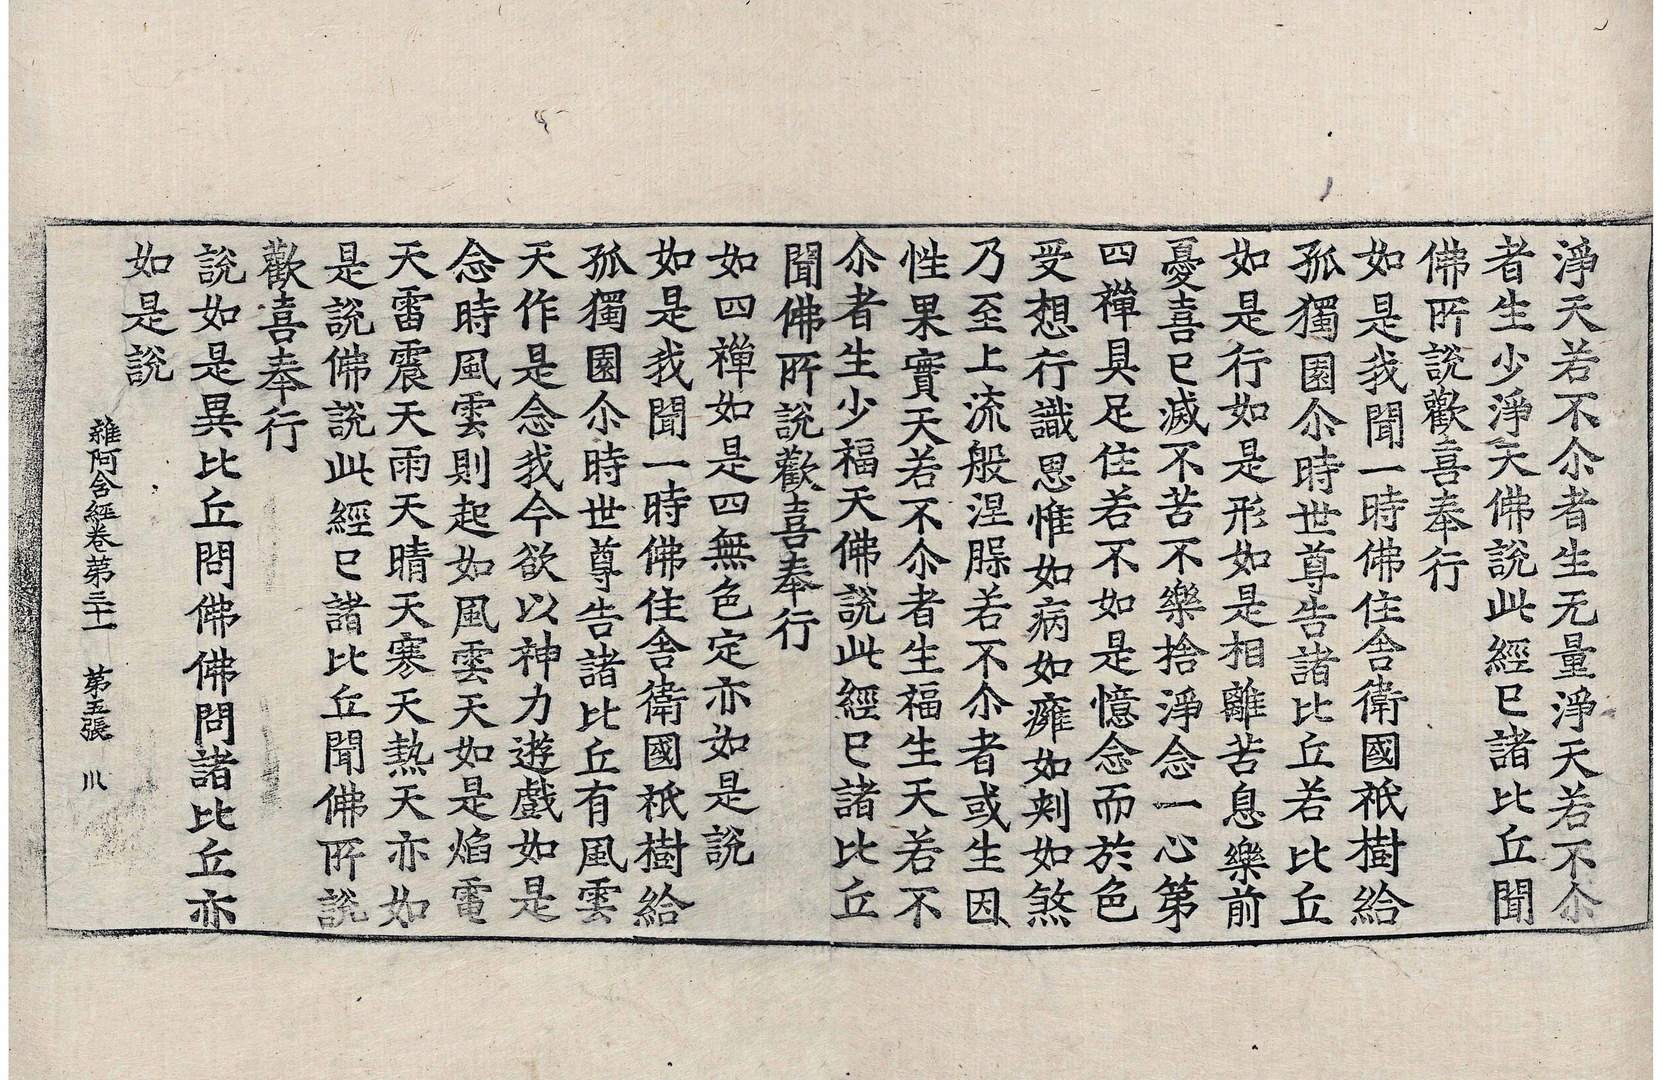 淨天若不尒者生无量淨天若不尒
者生少淨天佛說此經已諸比丘聞
佛所說歡喜奉行
如是我聞一時佛住舍衛國祇樹給
孤獨園尒時世尊告諸比丘若比丘
如是行如是形如是相離苦息樂前
憂喜已滅不苦不樂捨淨念一心第
四禪具足住若不如是憶念而於色
受想行識思惟如病如癰如刺如煞
乃至上流般涅槃若不尒者或生因
性果實天若不尒者生福生天若不
尒者生少福天佛說此經已諸比丘
聞佛所說歡喜奉行
如四禪如是四無色定亦如是說
如是我聞一時佛住舍衛國祇樹給
孤獨園尒時世尊告諸比丘有風雲
天作是念我今欲以神力遊戲如是
念時風雲則起如風雲天如是焰電
天雷震天雨天晴天寒天熱天亦如
是說佛說此經已諸比丘聞佛所說
歡喜奉行
說如是異比丘問佛佛問諸比丘亦
如是說
雜阿含經卷第三十一 第五張 㴇